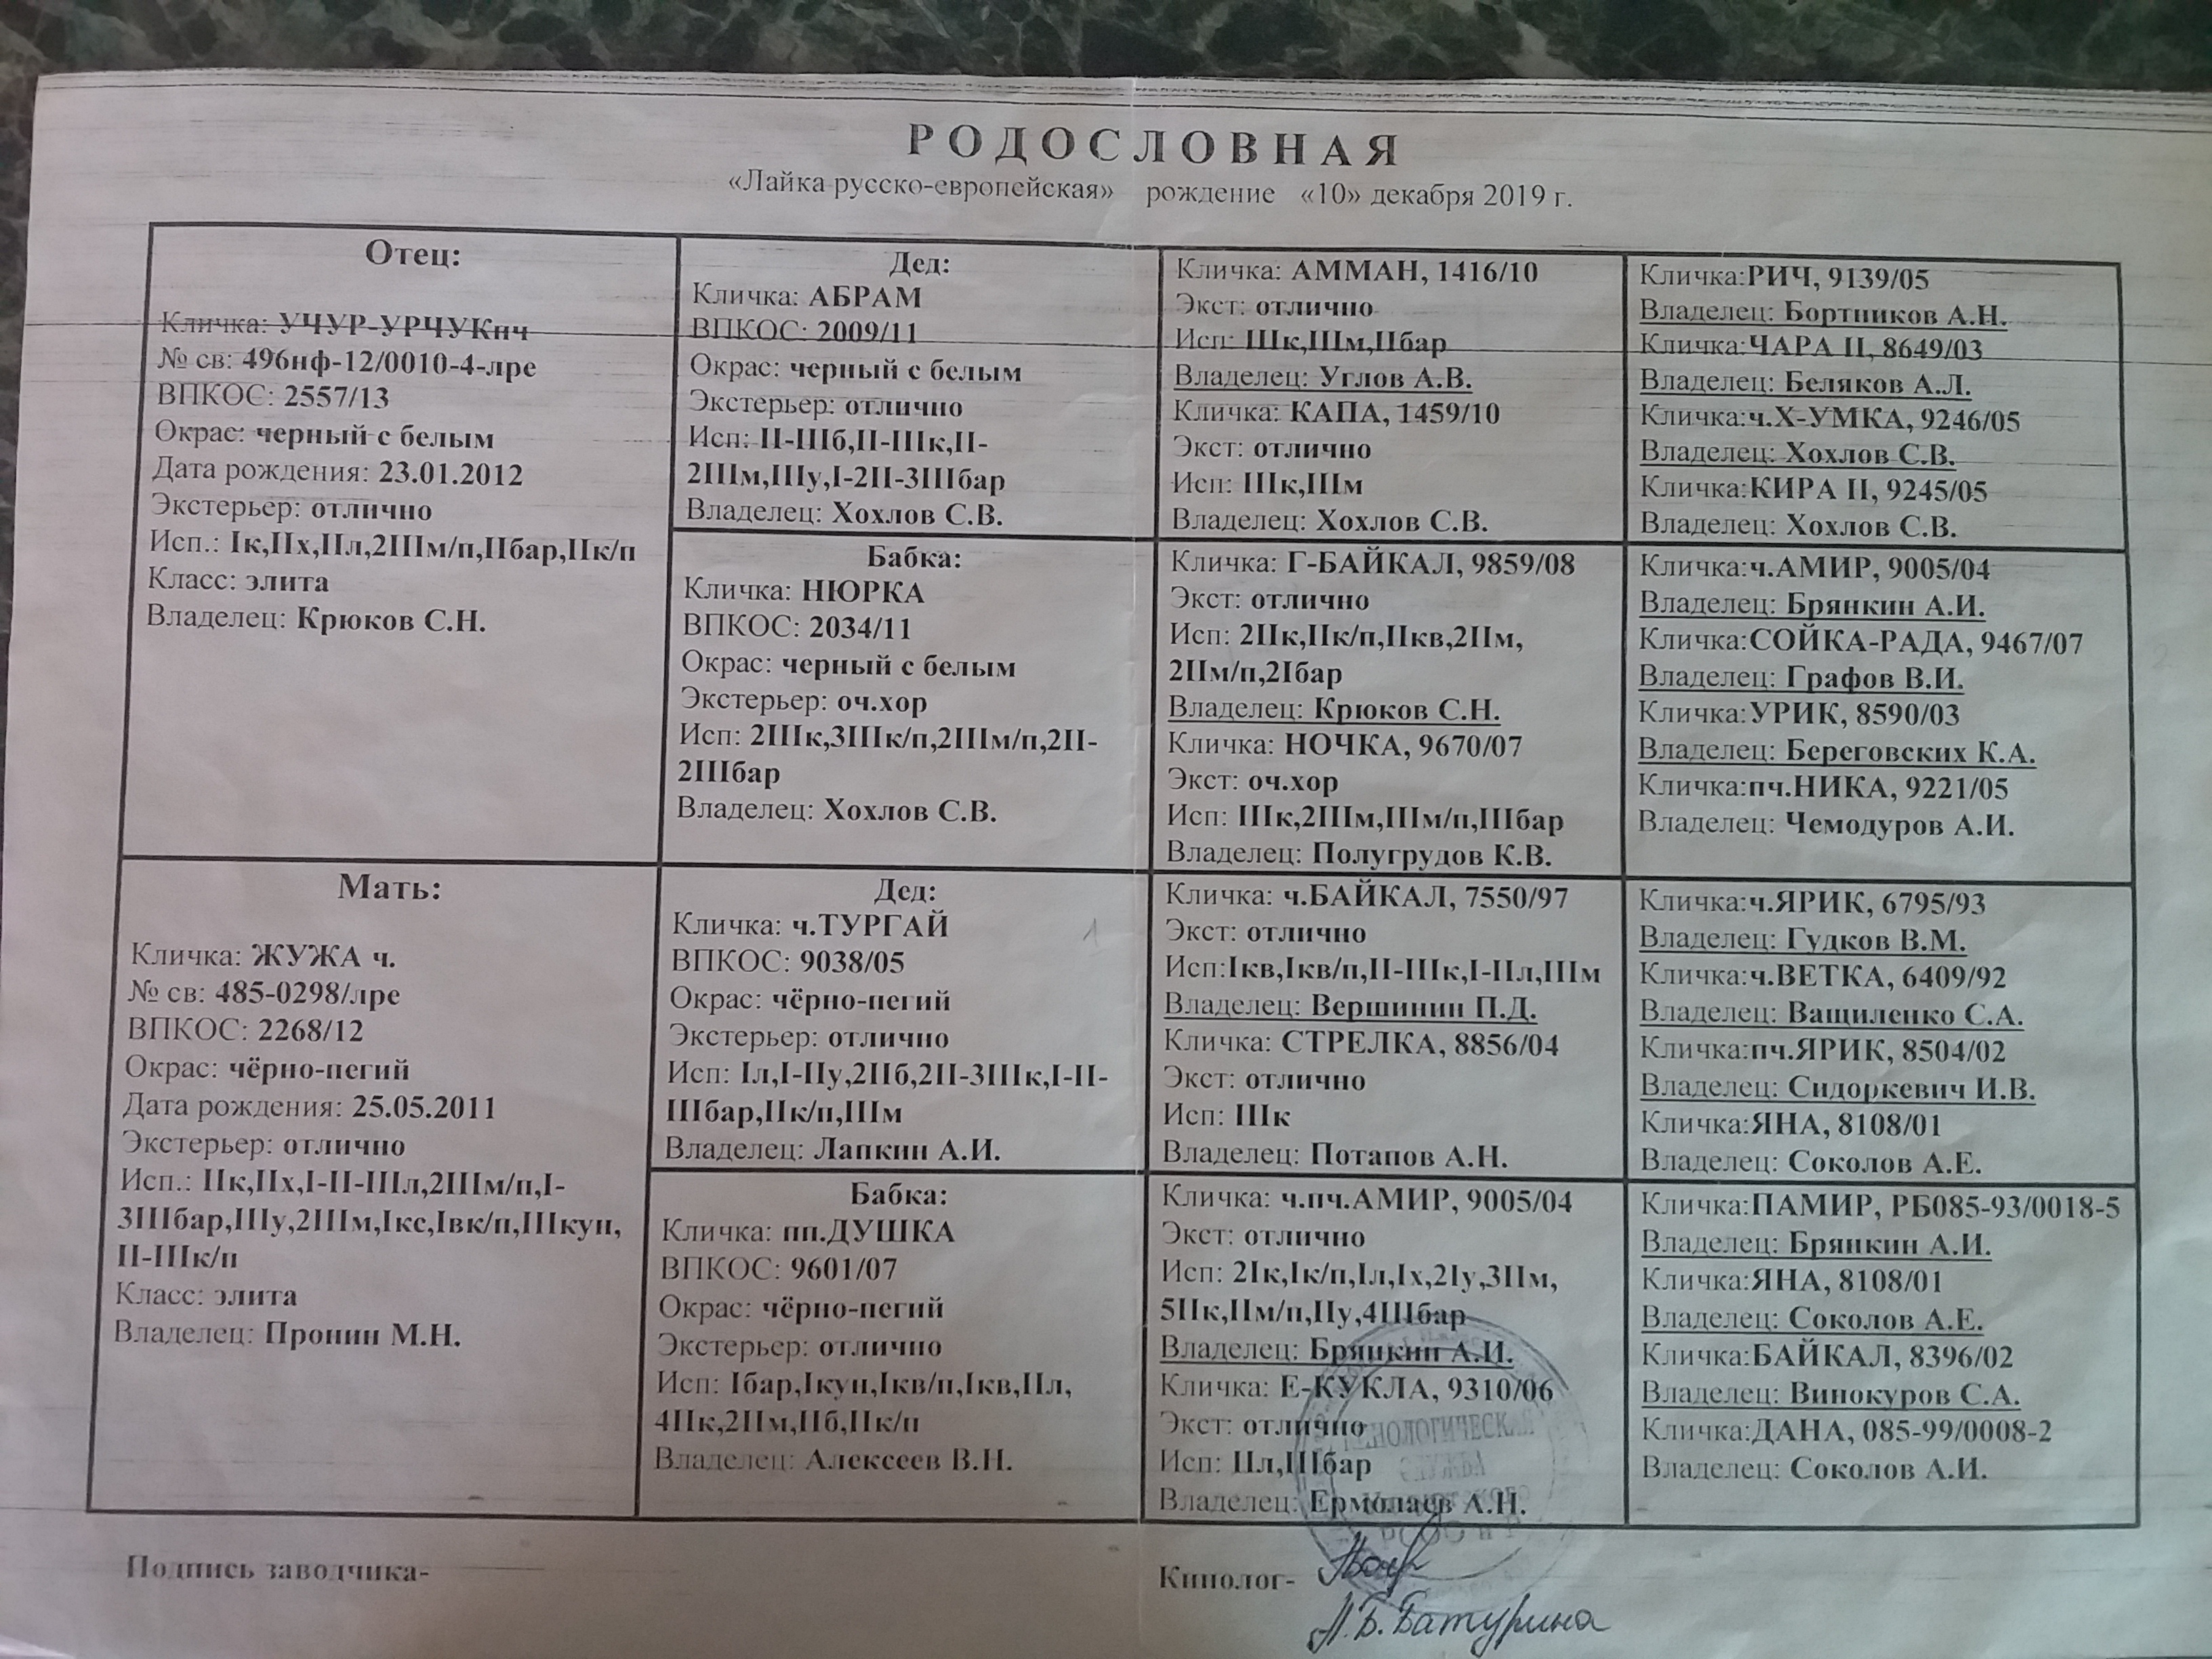 РОДОСЛОВНАЯ
«Лайка русско-европейская» рождение «10» декабря 2019 г.
Отец:
Кличка: УЧУР-УРЧУКпч
№ св: 496нф-12/0010-4-лре
ВПКОС: 2557/13
Окрас: черный с белым
Дата рождения: 23.01.2012
Экстерьер: отлично
Исп.: Iк,IIх,IIл,2IIIм/п,IIбар,IIк/п
Класс: элита
Владелец: Крюков С.Н.
Дед:
Кличка: АБРАМ
ВПКОС: 2009/11
Окрас: черный с белым
Экстерьер: отлично
Исп: II-IIIб,II-IIIк,II-
2IIIм,IIIу,I-2II-3IIIбар
Владелец: Хохлов С.В.
Бабка:
Кличка: НЮРКА
ВПКОС: 2034/11
Окрас: черный с белым
Экстерьер: оч.хор
Исп: 2IIIк,3IIIк/п,2IIIм/п,2II-
2IIIбар
Владелец: Хохлов С.В.
Кличка: АММАН, 1416/10
Экст: отлично
Исп: IIIк,IIIм,IIбар
Владелец: Углов А.В.
Кличка: КАПА, 1459/10
Экст: отлично
Исп: IIIк,IIIм
Владелец: Хохлов С.В.
Кличка: Г-БАЙКАЛ, 9859/08
Экст: отлично
Исп: 2IIк,IIк/п,IIкв,2IIм,
2IIм/п,2Iбар
Владелец: Крюков С.Н.
Кличка: НОЧКА, 9670/07
Экст: оч.хор
Исп: IIIк,2IIIм,IIIм/п,IIIбар
Владелец: Полугрудов К.В.
Кличка:РИЧ, 9139/05
Владелец: Бортников А.Н.
Кличка:ЧАРА II, 8649/03
Владелец: Беляков А.Л.
Кличка:ч.Х-УМКА, 9246/05
Владелец: Хохлов С.В.
Кличка:КИРА II, 9245/05
Владелец: Хохлов С.В.
Кличка:ч.АМИР, 9005/04
Владелец: Брянкин А.И.
Кличка:СОЙКА-РАДА, 9467/07
Владелец: Графов В.И.
Кличка:УРИК, 8590/03
Владелец: Береговских К.А.
Кличка:пч.НИКА, 9221/05
Владелец: Чемодуров А.И.
Мать:
Кличка: ЖУЖА ч.
№ св: 485-0298/лре
ВПКОС: 2268/12
Окрас: чёрно-пегий
Дата рождения: 25.05.2011
Экстерьер: отлично
Исп.: IIк,IIх,I-II-IIIл,2IIIм/п,I-
3IIIбар,IIIу,2IIIм,Iкс,Iвк/п,IIIкуп,
II-IIIк/п
Класс: элита
Владелец: Пронин М.Н.
Дед:
Кличка: ч.ТУРГАЙ
ВПКОС: 9038/05
Окрас: чёрно-пегий
Экстерьер: отлично
Исп: Iл,I-IIу,2IIб,2II-3IIIк,I-II-
IIIбар,IIк/п,IIIм
Владелец: Лапкин А.И.
Бабка:
Кличка: пп.ДУШКА
ВПКОС: 9601/07
Окрас: чёрно-пегий
Экстерьер: отлично
Исп: Iбар,Iкун,Iкв/п,Iкв,IIл,
4IIк,2IIм,IIб,IIк/п
Владелец: Алексеев В.Н.
Кличка: ч.БАЙКАЛ, 7550/97
Экст: отлично
Исп:Iкв,Iкв/п,II-IIIк,I-IIл,IIIм
Владелец: Вершинин П.Д.
Кличка: СТРЕЛКА, 8856/04
Экст: отлично
Исп: IIIк
Владелец: Потапов А.Н.
Кличка: ч.пч.АМИР, 9005/04
Экст: отлично
Исп: 2Iк,Iк/п,Iл,Iх,2Iу,3IIм,
5IIк,IIм/п,IIу,4IIIбар
Владелец: Брянкин А.И.
Кличка: Е-КУКЛА, 9310/06
Экст: отлично
Исп: IIл,IIIбар
Владелец: Ермолаев А.Н.
Кличка:ч.ЯРИК, 6795/93
Владелец: Гудков В.М.
Кличка:ч.ВЕТКА, 6409/92
Владелец: Ващиленко С.А.
Кличка:пч.ЯРИК, 8504/02
Владелец: Сидоркевич И.В.
Кличка:ЯНА, 8108/01
Владелец: Соколов А.Е.
Кличка:ПАМИР, РБ085-93/0018-5
Владелец: Брянкин А.И.
Кличка:ЯНА, 8108/01
Владелец: Соколов А.Е.
Кличка:БАЙКАЛ, 8396/02
Владелец: Винокуров С.А.
Кличка:ДАНА, 085-99/0008-2
Владелец: Соколов А.И.
Подпись заводчика-
Кинолог-
Л.Б.Батурина